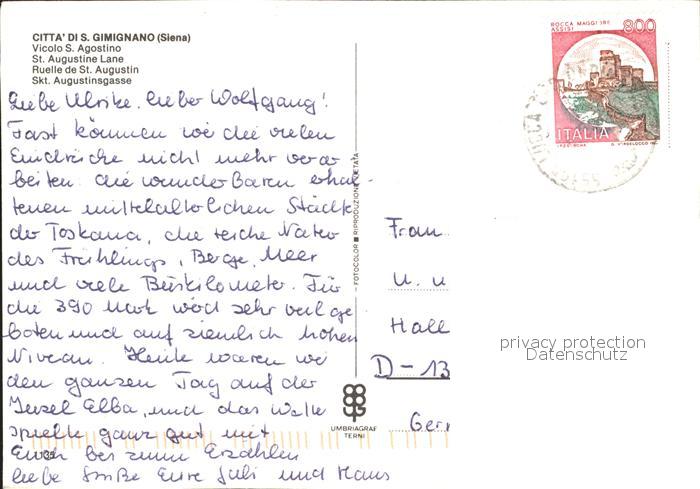 CITTA' DI S. GIMIGNANO (Siena)
Vicolo S. Agostino
St. Augustine Lane
Ruelle de St. Augustin
Skt. Augustinsgasse
Liebe Ulrike, lieber Wolfgang!
Fast können wir die vielen
Eindrücke nicht mehr verar-
beiten: die wunderbaren erhal-
tenen mittelalterlichen Städte
der Toskana, die reiche Natur
des Frühlings, Berge, Meer
und viele Buskilometer. Für
die 390 Mark wird sehr viel ge
boten und auf ziemlich hohem
Niveau. Heute waren wir
den ganzen Tag auf der
Insel Elba, und das Wetter
spielte ganz gut mit
Euch bei zum Erzählen
liebe Grüße Eure Juli und Hans
135
FOTOCOLOR ■ RIPRODUZIONE VIETATA
UMBRIAGRAF
TERNI
ROCCA MAGGIORE
ASSISI
800
ITALIA
I.P.Z.S. ROMA
LUCCA
Fam
u. u
Hall
D-13
Germ
privacy protection
Datenschutz